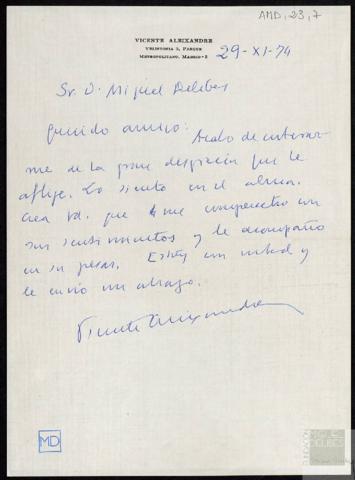 AMD, 23, 7
VICENTE ALEIXANDRE
VELINTONIA 3, PARQUE
METROPOLITANO, MADRID-3
29-XI-74
Sr. D. Miguel Delibes
Querido amigo: Acabo de enterar-
me de la gran desgracia que le
aflige. Lo siento en el alma.
Crea Vd. que me compenetro con
sus sentimientos y le acompaño
en su pesar. Estoy con usted y
le envío un abrazo.
Vicente Aleixandre
MD
FUNDACIÓN
MIGUEL
DELIBES